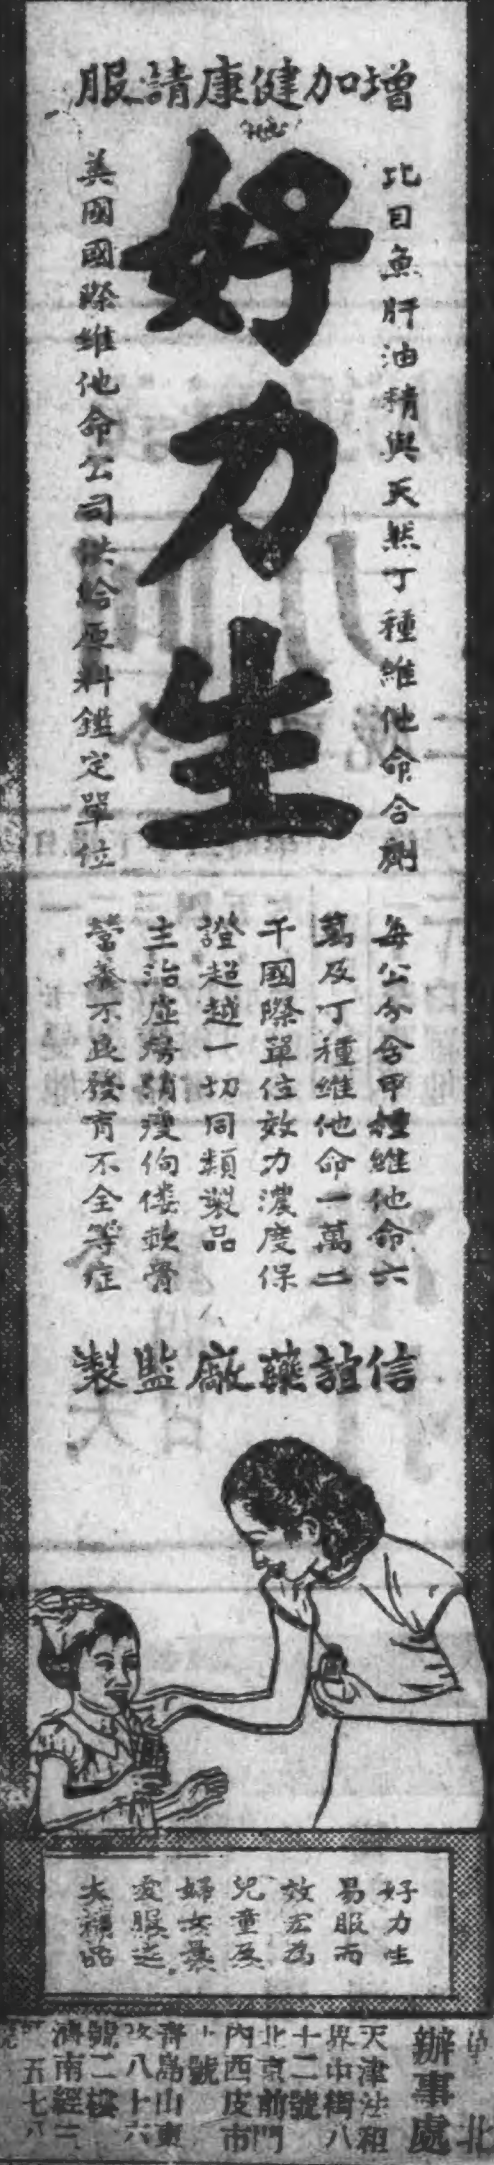 增加健康請服
好力生
比目魚肝油精與天然丁種維他命合劑
美國國際維他命公司供給原料鑑定單位
每公分含甲種維他命六
萬及丁種維他命一萬二
千國際單位效力濃度保
證超越一切同類製品
主治虛弱消瘦佝僂軟骨
營養不良發育不全等症
信誼藥廠監製
好力生
易服而
效宏為
兒童及
婦女最
愛服之
大補品
華北
辦事處
天津法租
界中街八
十二號
北京前門
內西皮市
十號
青島山東
路八十六
號二樓
濟南經二
五七八